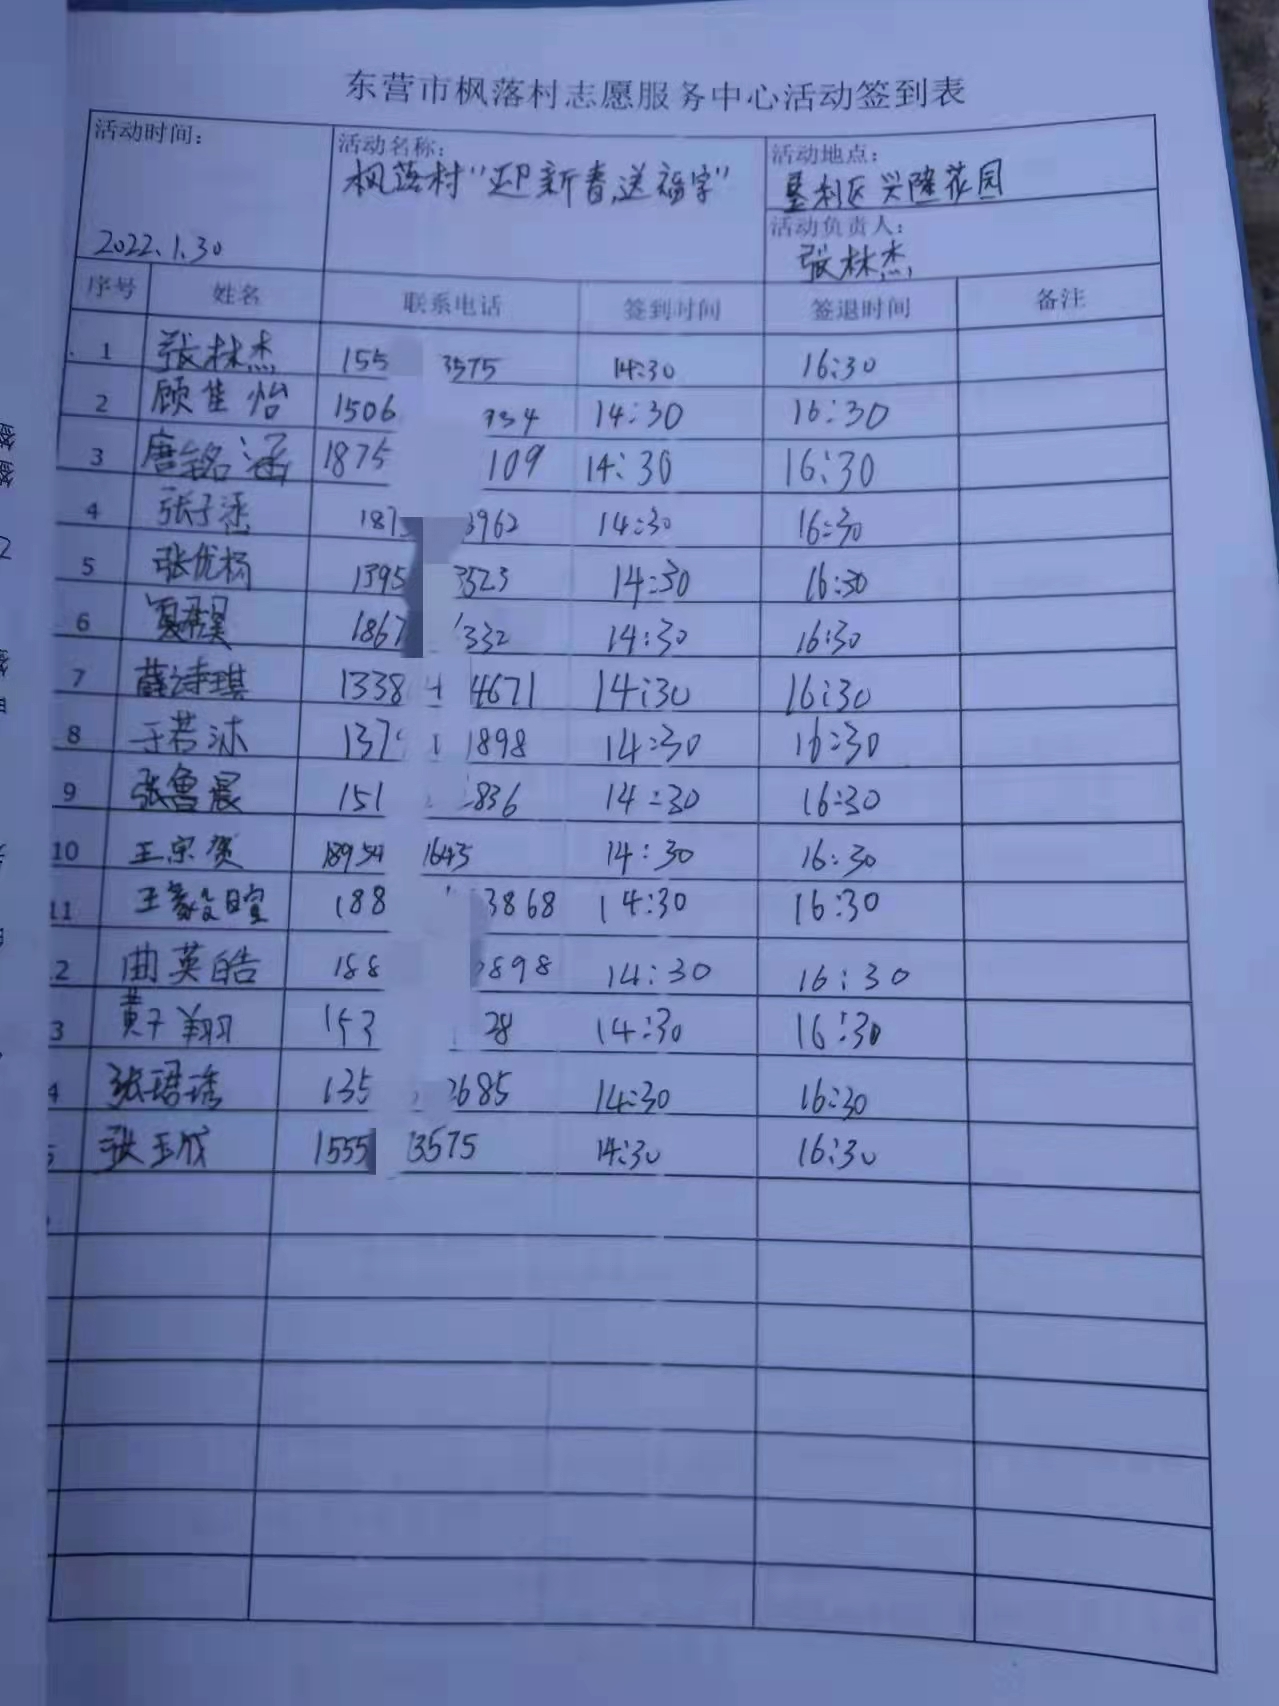 东营市枫落村志愿服务中心活动签到表
活动时间：
2022.1.30
活动名称：
枫落村“迎新春，送福字”
活动地点：
垦利区兴隆花园
活动负责人：
张林杰
序号 姓名 联系电话 签到时间 签退时间 备注
1 张林杰 155 3575 14:30 16:30
2 顾佳怡 1506 934 14:30 16:30
3 唐铭涵 1875 109 14:30 16:30
4 张子 187 3962 14:30 16:30
5 张优杨 1395 3523 14:30 16:30
6 1867 332 14:30 16:30
7 薛诗琪 1338 4671 14:30 16:30
8 于若沐 137 1898 14:30 16:30
9 张鲁晨 151 836 14:30 16:30
10 王宗贺 18954 1643 14:30 16:30
11 王毅暄 188 3868 14:30 16:30
2 曲英皓 188 898 14:30 16:30
3 黄子翔 153 28 14:30 16:30
4 张珺琇 135 2685 14:30 16:30
5 张玉成 1555 3575 14:30 16:30